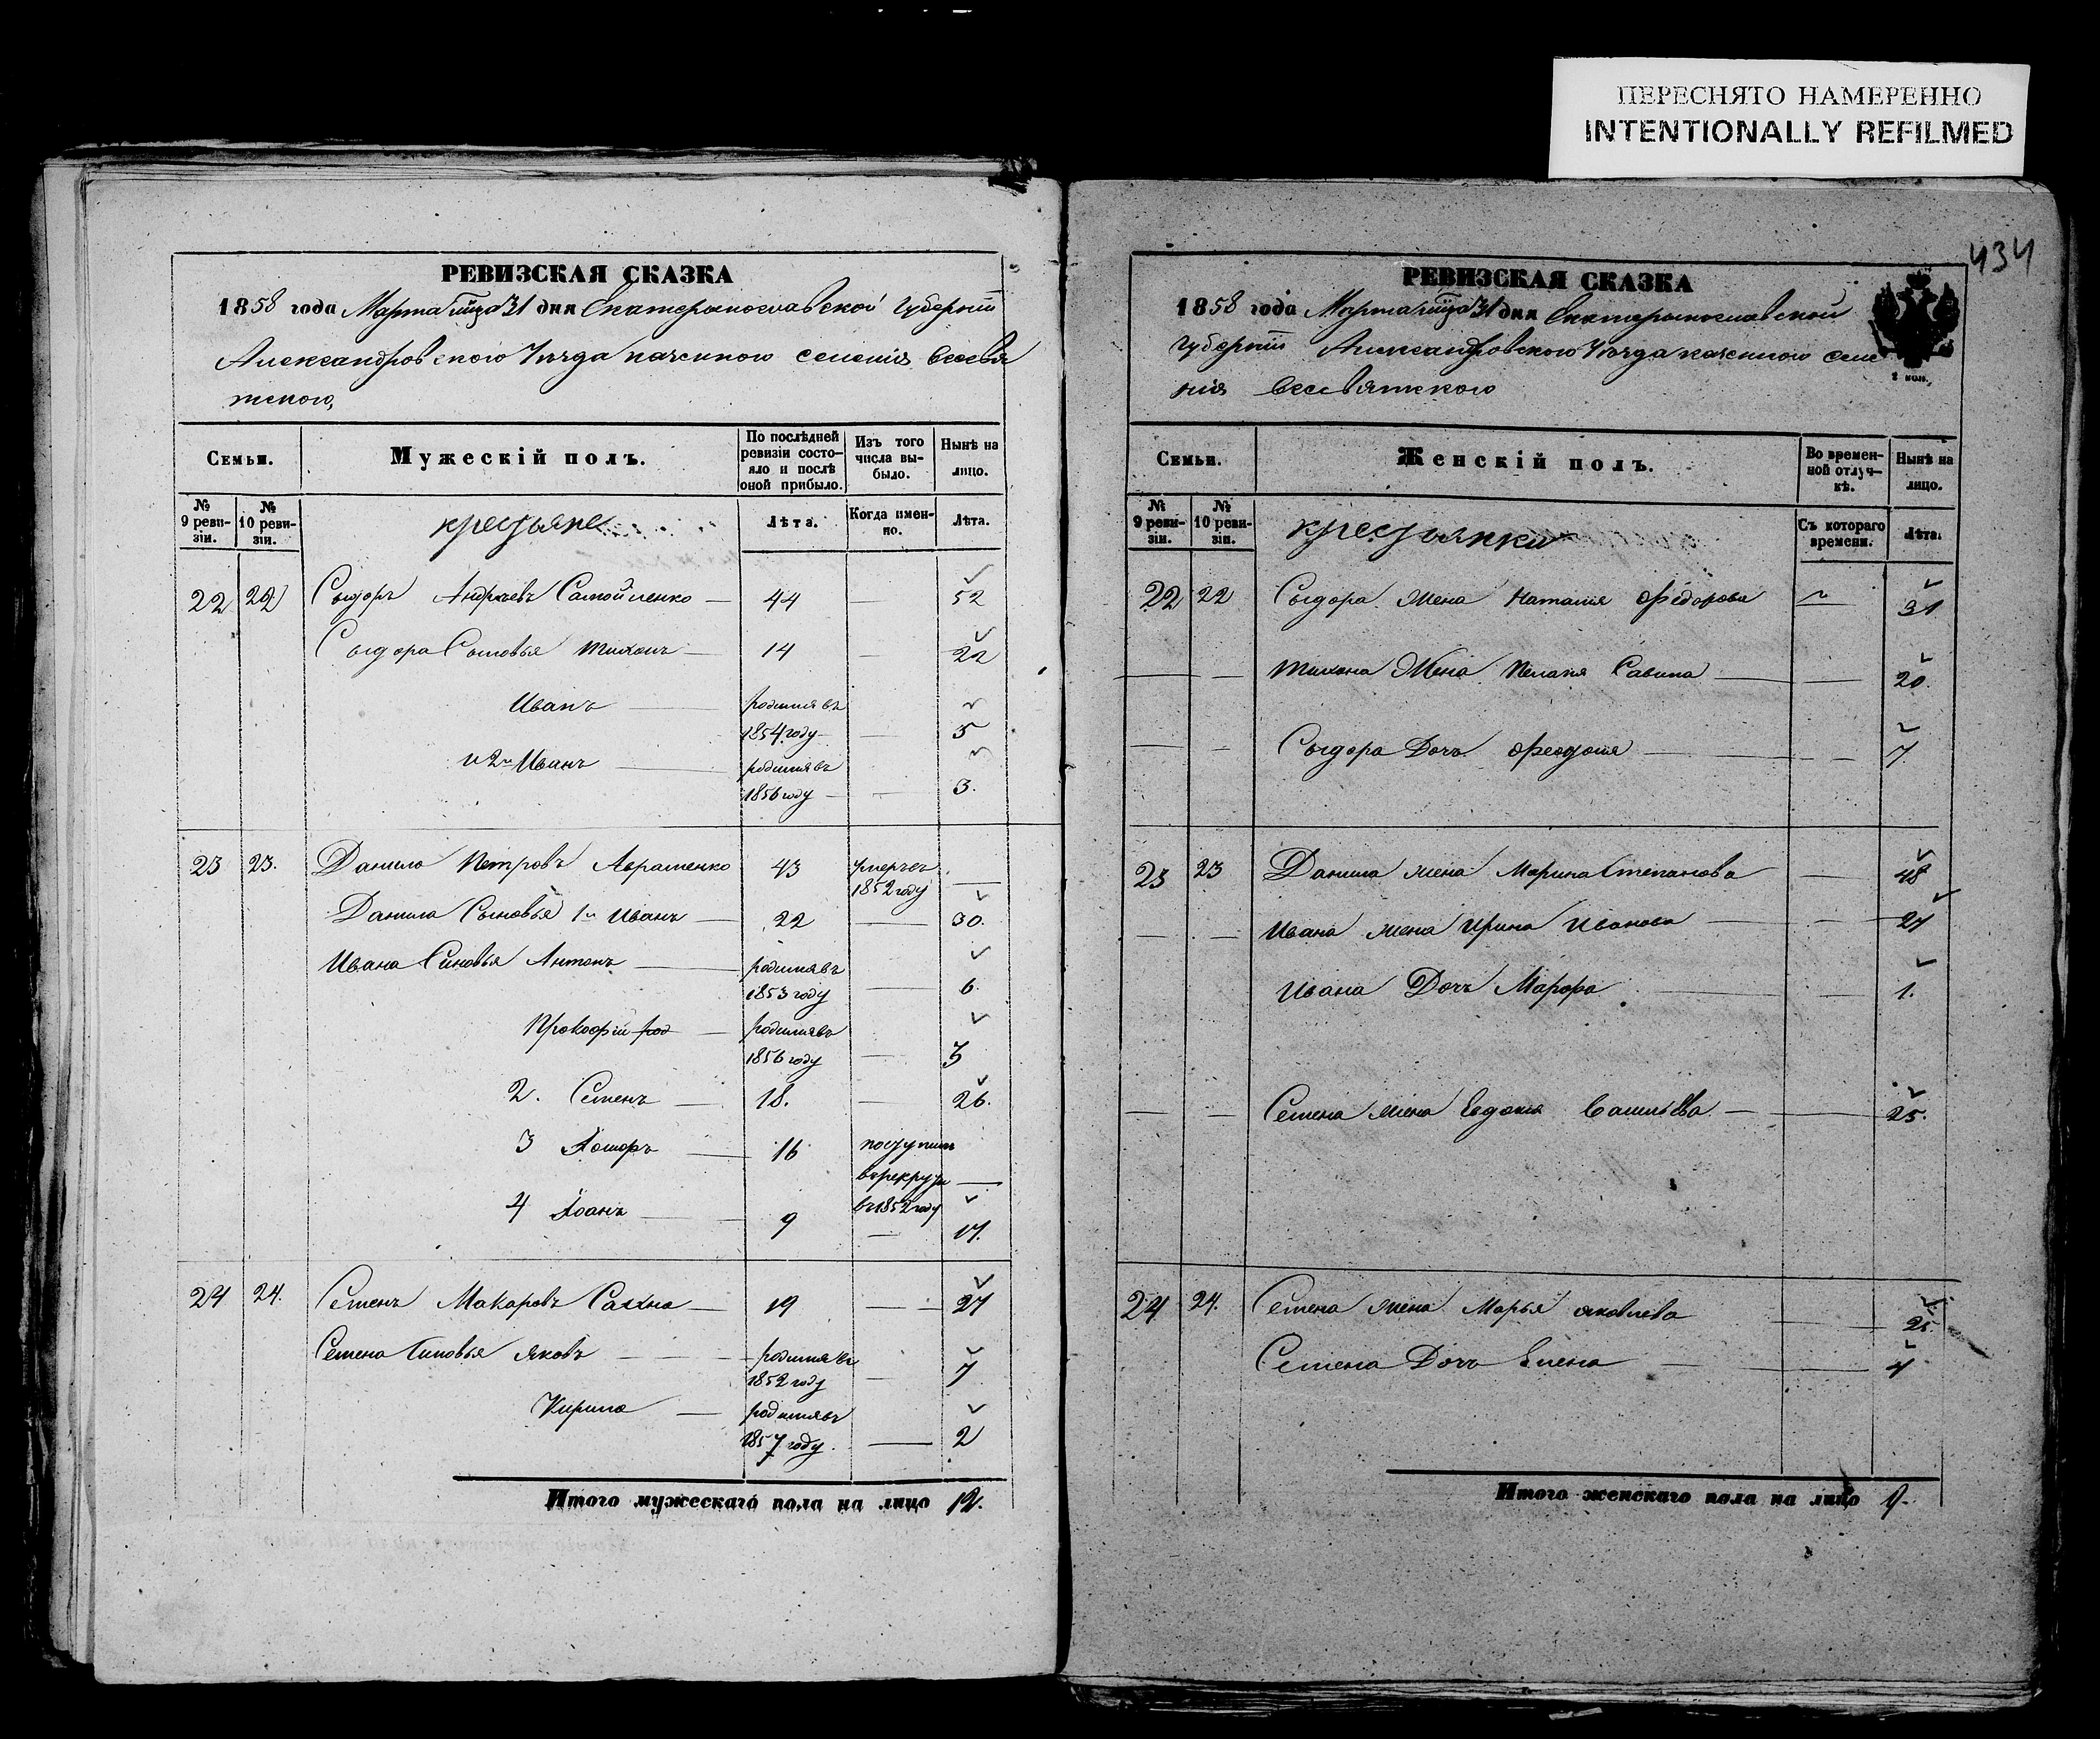 ПЕРЕСНЯТО НАМЕРЕННО
INTENTIONALLY REFILMED
РЕВИЗСКАЯ СКАЗКА
1858 года Марта мца 31 дня Екатеринославской Губернiи
Александровского Уѣзда казенного селенiя Всесвя
тского,
Семьи.
Мужескiй полъ.
По послѣдней ревизiи состо- яло и послѣ оной прибыло.
Изъ того числа вы- было.
Нынѣ на лицо.
№ 9 реви- зiи.
№ 10 реви- зiи.
крестьяне
Лѣта.
Когда имен- но.
Лѣта.
22 22 Сыдоръ Андреевъ Самойленко — 44 — 52
Сыдора Сыновья Тихонъ — 14 — 22
Иванъ — родился въ
1854 году — 5
и 2й Иванъ — родился въ
1856 году — 3.
23 23. Данило Петровъ Авраменко 43 умеръ въ
1852 году —
Данила Сыновья 1й Иванъ — 22 — 30.
Ивана Сыновья Антонъ — родился въ
1853 году — 6
Прокофiй род — родился въ
1856 году — 3
2. Семенъ — 18. — 26.
3 — 16 поступилъ
въ рекруты —
4 — 9 въ 1852 году
— 17.
24 24. Семенъ Макаровъ Сахно — 19 — 27
Семена Сыновья Яковъ — родился въ
1852 году — 7
Кирило — родился въ
1857 году. — 2
Итого мужескаго пола на лицо 12.
434
РЕВИЗСКАЯ СКАЗКА
1858 года Марта мца 31 дня Екатеринославской
Губернiи Александровского Уѣзда казенного селе
нiя Всесвятского
1 коп.
Семьи.
Женскiй полъ.
Во времен- ной отлуч- кѣ.
Нынѣ на лицо.
№ 9 реви- зiи.
№ 10 реви- зiи.
крестьянки
Съ котораго времени.
Лѣта.
22 22 Сыдора жена Наталiя Федорова — 31
— — Тихона Жена Пелагiя Савина — — 20.
— — Сыдора Дочь Феодосiя — — 7
23 23 Данила жена Марина Степанова — 48
— — Ивана жена Ирина Иванова — — 27
Ивана Дочь Марфа — — 1.
— — Семена жена Евдокiя Васильева. — — 25.
24 24. Семена жена Марья Яковлева — — 25.
Семена Дочь Елена — — 4
Итого женскаго пола на лицо 9.